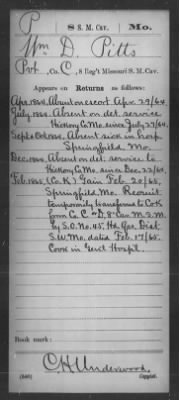 P | 8 S. M. Cav. | Mo.
Wm D. Pitts
Pvt., Co. C, 8 Reg't Missouri S. M. Cav.
Appears on Returns as follows:
Apr 1864, Absent on escort Apr 29/64
July 1864. Absent on det. service
Hickory Co. Mo. since July 27/64.
Sept & Oct 1864, Absent sick in hosp.
Springfield, Mo.
Dec. 1864. Absent on det. service to
Hickory Co. Mo. since Dec. 22/64.
Feb. 1865. (Co. K) Gain Feb. 20/65,
Springfield, Mo. Recruit
temporarily transferred to Co K
from Co. C "D, 8" Cav M.S.M.
by S.O. No. 45. Hd. Qrs. Dist.
S.W. Mo. dated Feb. 17/65.
Cook in Gen'l Hospl.
Book mark:
C H Underwood,
(546) Copyist.